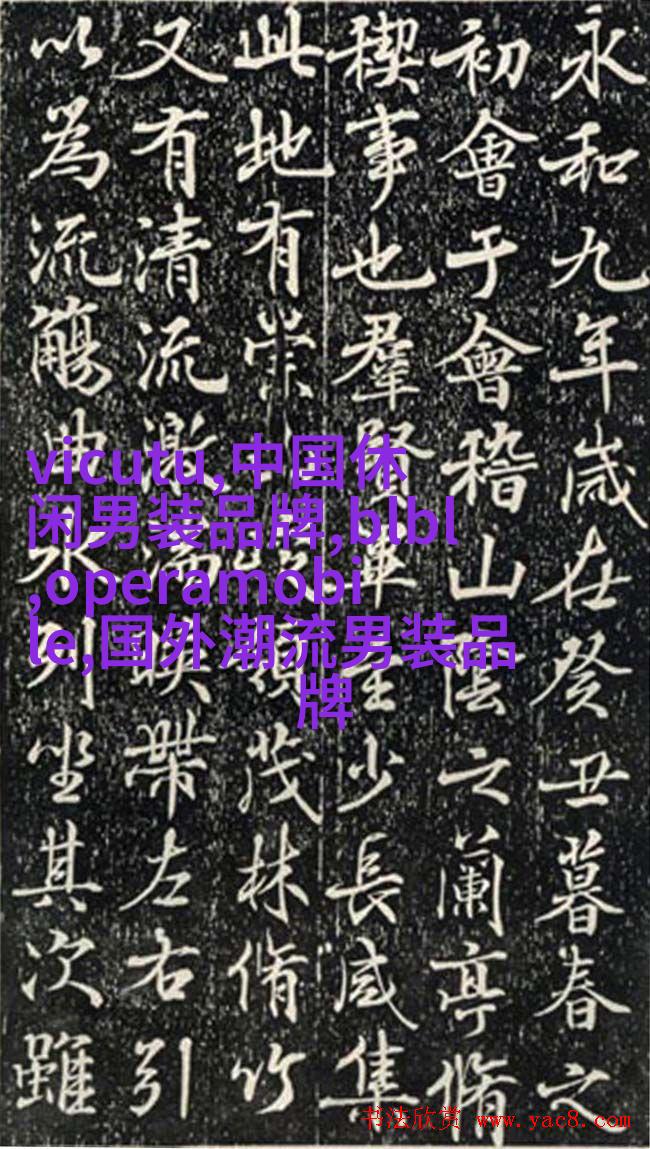 永和九年歲在癸丑暮春之
初會于會稽山陰之蘭亭脩
稧事也羣賢畢至少長咸集
此地有崇領茂林脩竹
又有清流激湍暎帶左右引
以為流觴曲水列坐其次雖
vicutu,中国休
闲男装品牌,blbl
,operamobi
le,国外潮流男装品
牌
书法欣赏 www.yac8.com